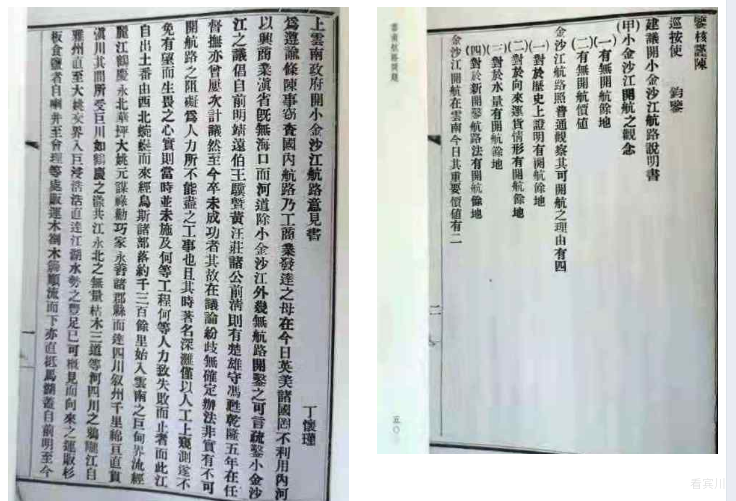 上雲南政府開小金沙江航路意見書
丁懷瑾
爲遵諭條陳事窃查國內航路乃工商業發達之母在今日英美諸國罔不利用內河
以興商業滇省旣無海口而河道除小金沙江外幾無航路開鑿之可言疏鑿小金沙
江之議倡自前明靖遠伯王驥暨黃汪莊諸公前淸則有楚雄守馮甦乾隆五年在任
督撫亦曾歷次計議然至今卒未成功者其故在議論紛歧無確定辦法非實有不可
開航路之阻礙爲人力所不能盡之工事也且其時著名深灘僅以人工上窺測遂不
免有望而生畏之心實則當時並未施及何等工程何等人力致失敗而止者而此江
自出土番由西北蜿蜒而來經烏斯諸部落約千三百餘里始入雲南之巨甸界流經
麗江鶴慶永北華坪大姚元謀祿勸巧家永善諸郡縣而達四川叙州千里綿亘直貫
滇川其間所受巨川如鶴慶之漾共江永北之無量枯木三道等河四川之鴉礲江自
雅州直至大姚交界入巨浸浩浩直達江湖水勢之豐足已可槪見而向來之運販杉
板食鹽者自喇井至會理等處販運木捌木簰順流而下亦直抵馬湖蓋自前明至今
鑒核謹陳
巡按使 鈞鑒
建議開小金沙江航路說明書
(甲)小金沙江開航之觀念
(一)有無開航餘地
(二)有無開航價値
金沙江航路照普通觀察其可開航之理由有四
(一)對於歷史上證明有開航餘地
(二)對於向來運貨情形有開航餘地
(三)對於水量有開航餘地
(四)對於新開鑿航路法有開航餘地
金沙江開航在雲南今日其重要價値有二
雲南航路問題
五〇
看宾川